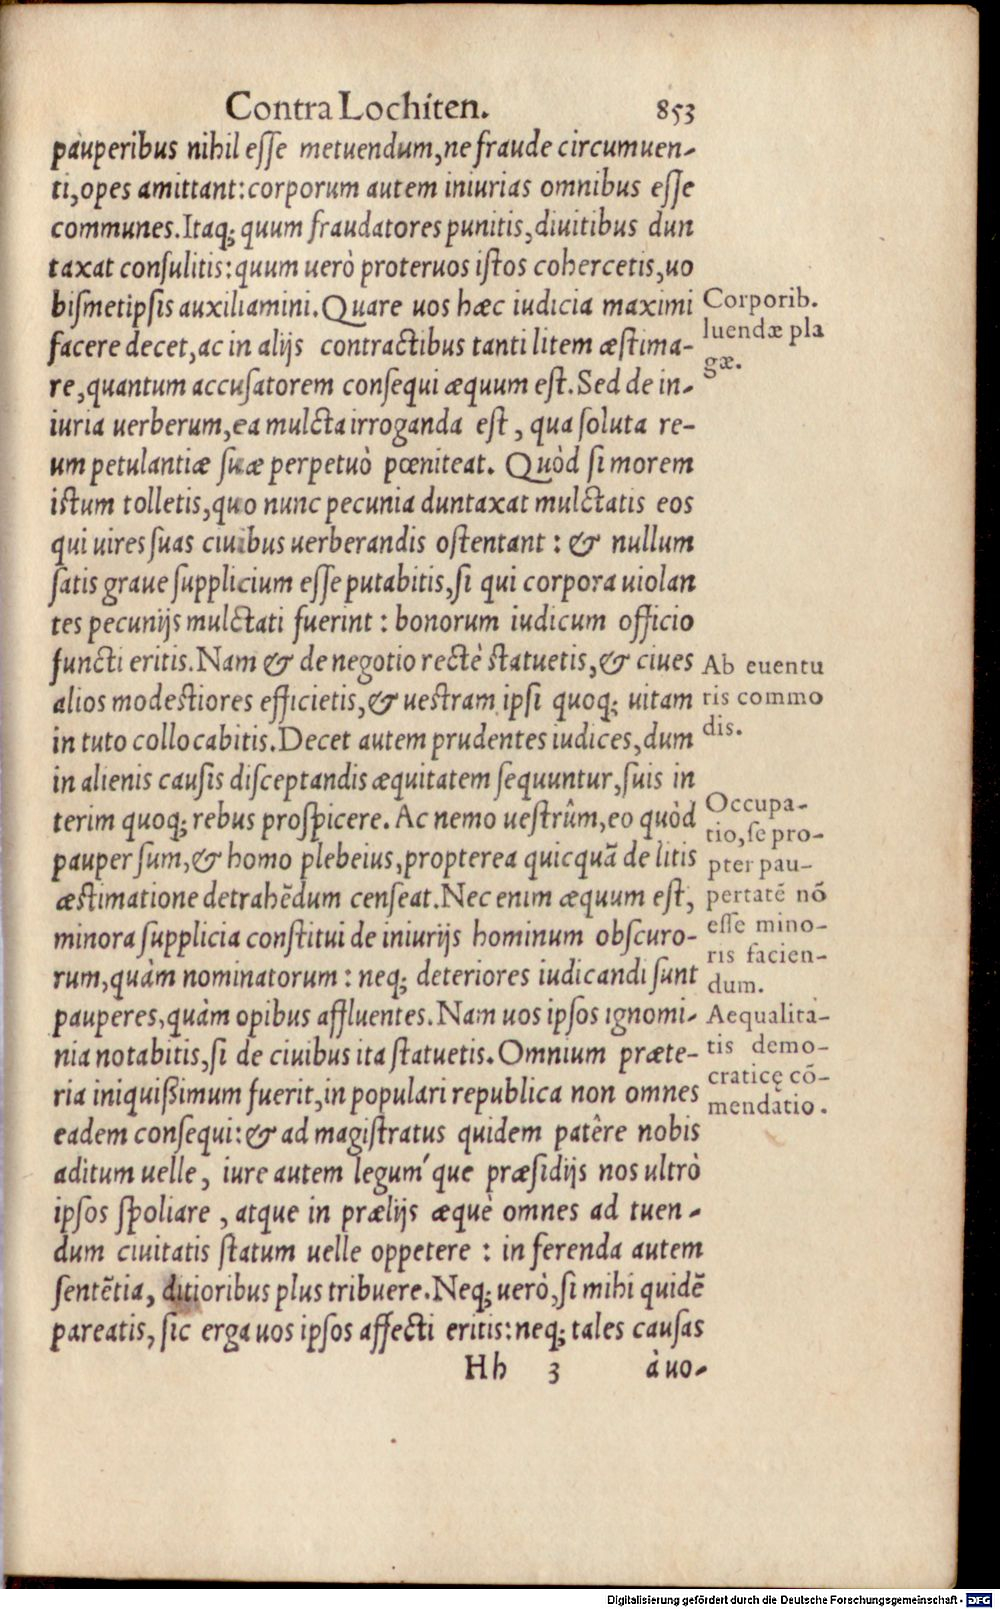 Contra Lochiten. 853
pauperibus nihil esse metuendum, ne fraude circumuen-
ti, opes amittant: corporum autem iniurias omnibus esse
communes. Itaq; quum fraudatores punitis, diuitibus dun
taxat consulitis: quum uerò proteruos istos cohercetis, uo
bismetipsis auxiliamini. Quare uos hæc iudicia maximi
facere decet, ac in alijs contractibus tanti litem æstima-
re, quantum accusatorem consequi æquum est. Sed de in-
iuria uerberum, ea mulcta irroganda est, qua soluta re-
um petulantiæ suæ perpetuò pœniteat. Quòd si morem
istum tolletis, quo nunc pecunia duntaxat mulctatis eos
qui uires suas ciuibus uerberandis ostentant: & nullum
satis graue supplicium esse putabitis, si qui corpora uiolan
tes pecunijs mulctati fuerint: bonorum iudicum officio
functi eritis. Nam & de negotio rectè statuetis, & ciues
alios modestiores efficietis, & uestram ipsi quoq; uitam
in tuto collocabitis. Decet autem prudentes iudices, dum
in alienis causis disceptandis æquitatem sequuntur, suis in
terim quoq; rebus prospicere. Ac nemo uestrûm, eo quòd
pauper sum, & homo plebeius, propterea quicquā de litis
æstimatione detrahēdum censeat. Nec enim æquum est,
minora supplicia constitui de iniurijs hominum obscuro-
rum, quàm nominatorum: neq; deteriores iudicandi sunt
pauperes, quàm opibus affluentes. Nam uos ipsos ignomi-
nia notabitis, si de ciuibus ita statuetis. Omnium præte-
ria iniquißimum fuerit, in populari republica non omnes
eadem consequi: & ad magistratus quidem patêre nobis
aditum uelle, iure autem legum´que præsidijs nos ultrò
ipsos spoliare, atque in prælijs æquè omnes ad tuen-
dum ciuitatis statum uelle oppetere: in ferenda autem
sentētia, ditioribus plus tribuere. Neq; uerò, si mihi quidē
pareatis, sic erga uos ipsos affecti eritis: neq; tales causas
Hh 3 à uo-
Corporib.
luendæ pla
gæ.
Ab euentu
ris commo
dis.
Occupa-
tio, se pro-
pter pau-
pertatē nō
esse mino-
ris facien-
dum.
Aequalita-
tis demo-
craticę cō-
mendatio.
Digitalisierung gefördert durch die Deutsche Forschungsgemeinschaft - DFG